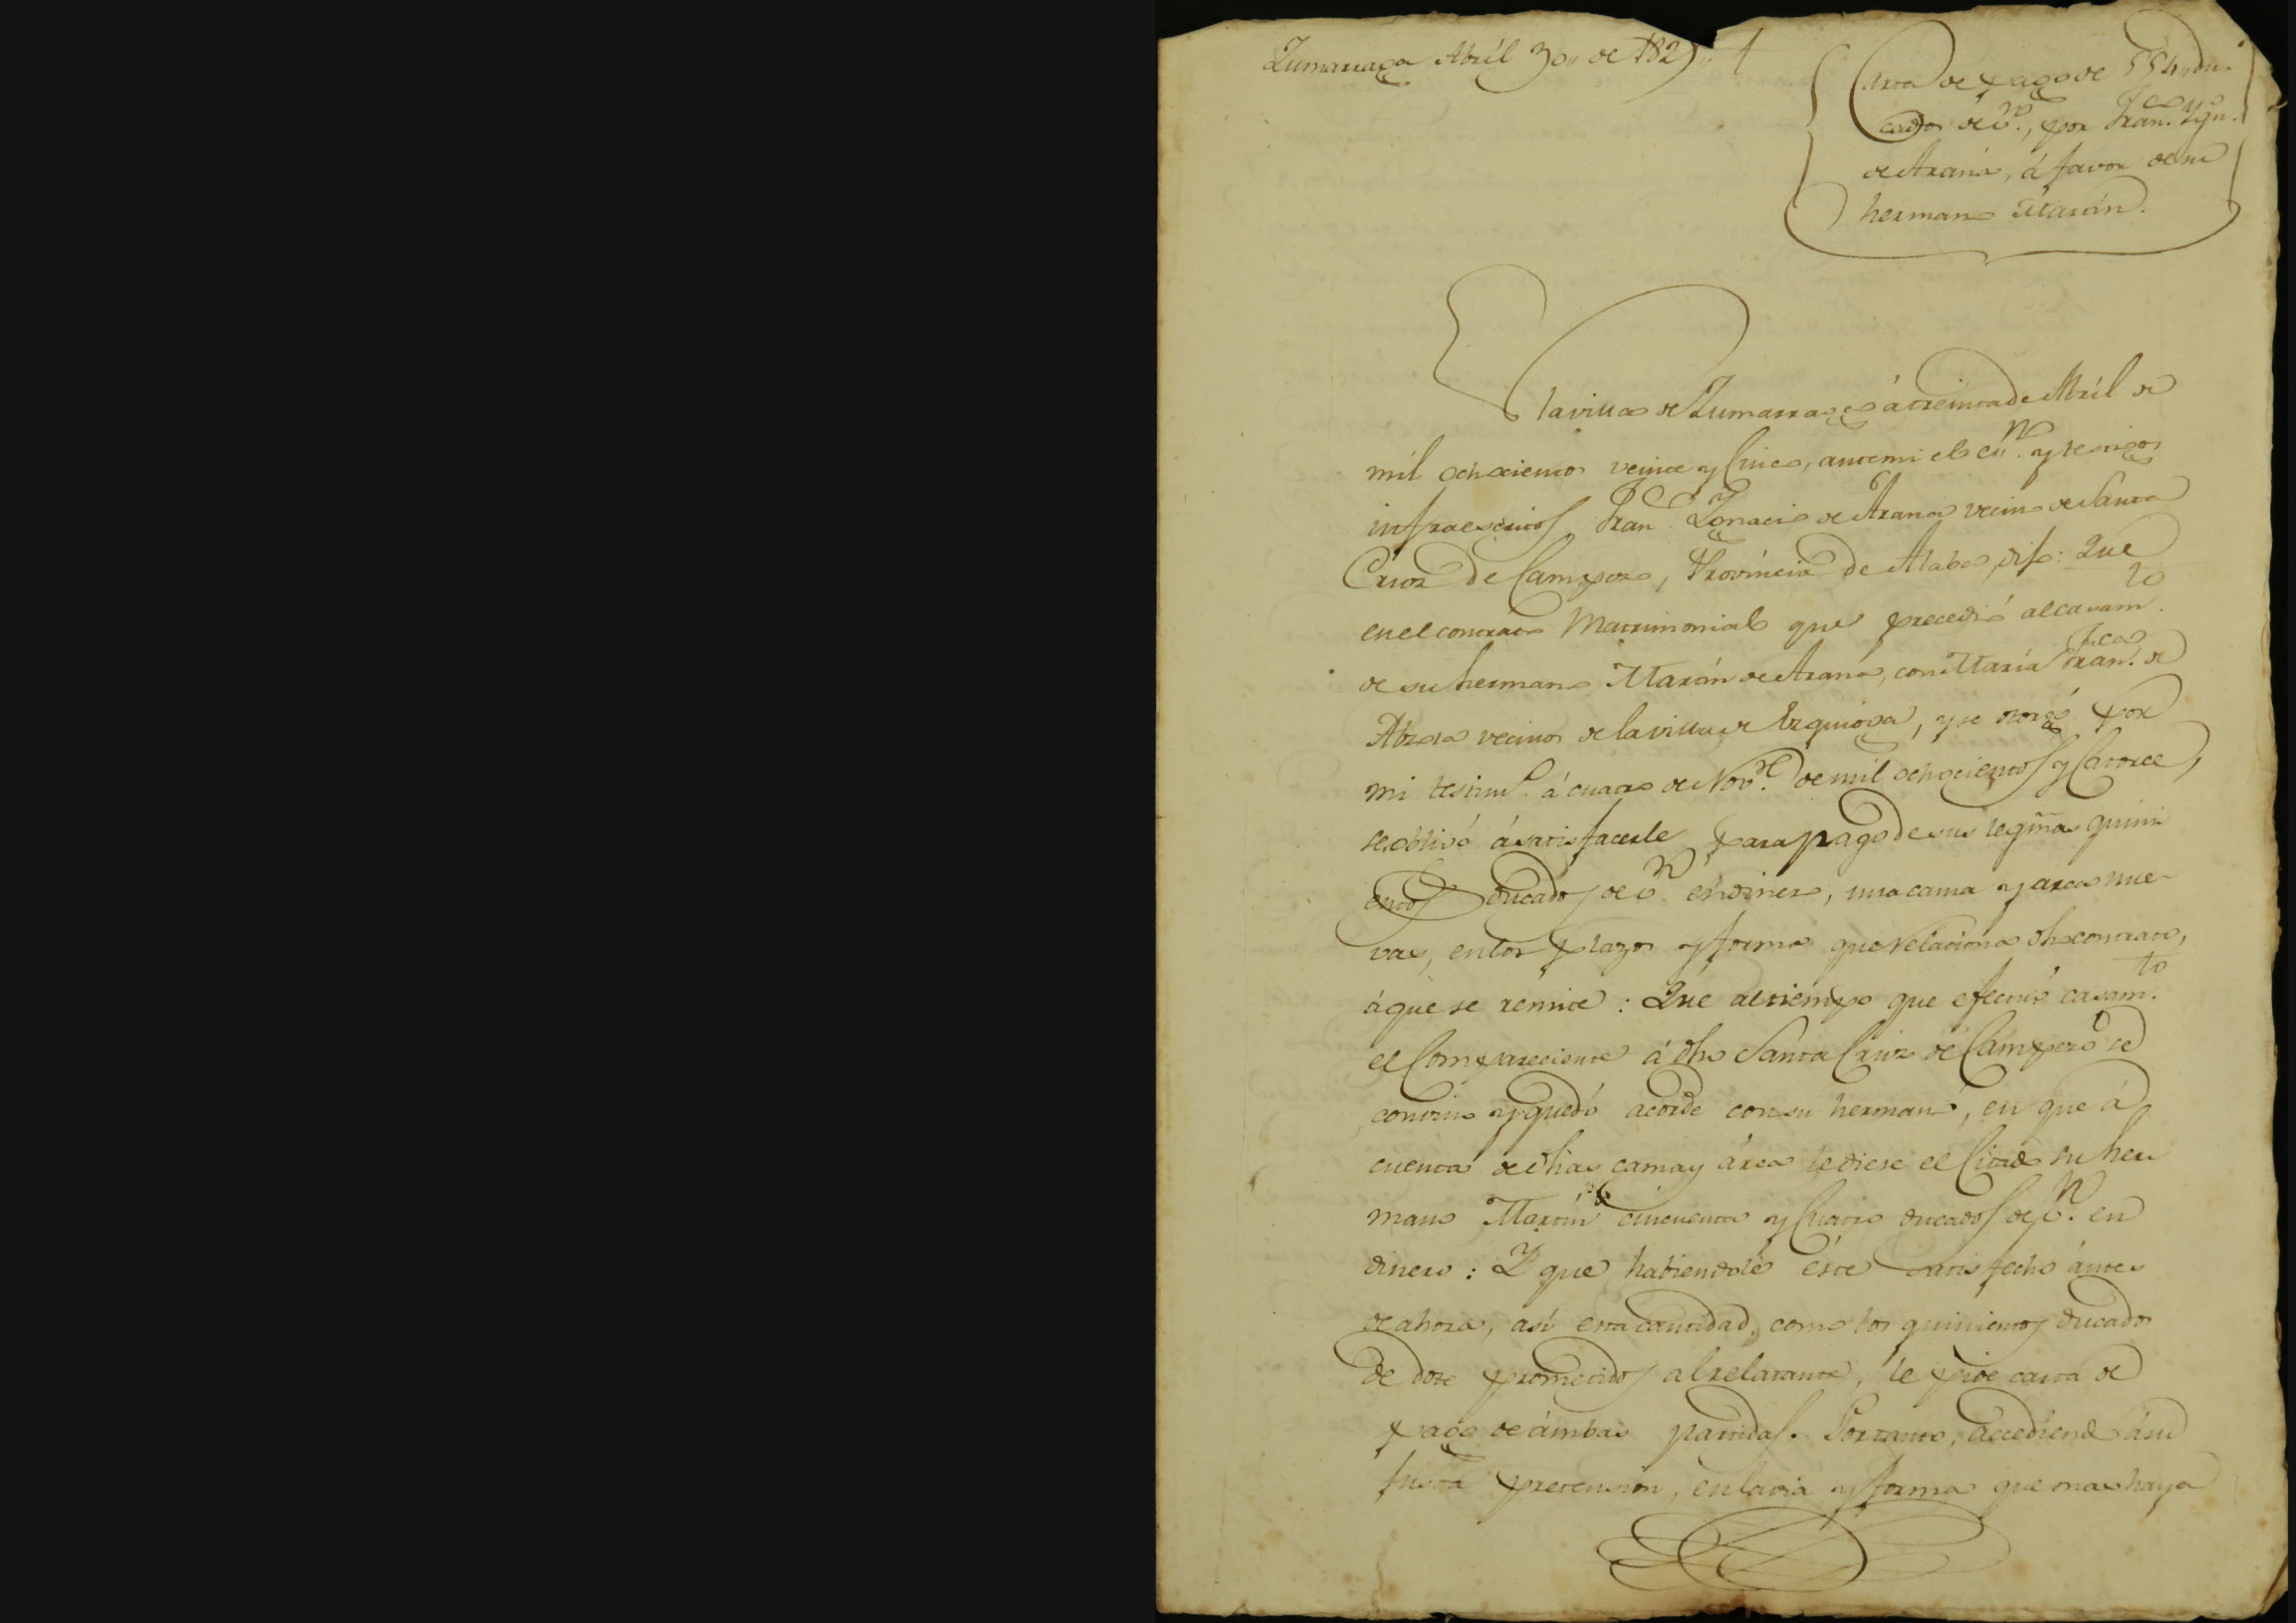 Zumarraga Abríl 30,, de 1825,,
Carta de pago de 554,, du-
cados de v.n, por Fran.co Ygn.o
de Arana, á favor de su
hermano Martín.
En la villa de Zumarraga á treinta de Abríl de
mil ochocientos veinte y Cinco, ante mi el es.no y testigos
infraescritos, Fran.co Ygnacio de Arana vecino de Santa
Cruz de Campezo, Provincia de Alaba, dijo: Que
en el contrato Matrimonial que precedió al casam.to
de su hermano Martín de Arana, con María Fran.ca de
vecinos de la villa de Ezquioga, y se otorgó por
mi testim.o á cuatro de Nov.re de mil ochocientos y Catorce,
se obligó á satisfacerle para pago de sus legmas quini
entos ducados de v.n en dinero, una cama y arca nue-
vas, en los plazos y forma que relaciona dho contrato,
á que se remite: Que al tiempo que efectuó casam.to
el Compareciente á dho Santa Cruz de Campezo se
convino y quedó acorde con su hermano, en que á
cuenta de dhas cama y árca le diese el Citado su her
mano Martín cincuenta y Cuatro ducados de v.n en
dinero: Y que habiendole éste satisfecho ántes
de ahora, así esta cantidad, como los quinientos ducados
de dote prometidos al relatante, le pide carta de
pago de ámbas partidas. Portanto, accediendo á su
justa pretension, en la via y forma que mas haya